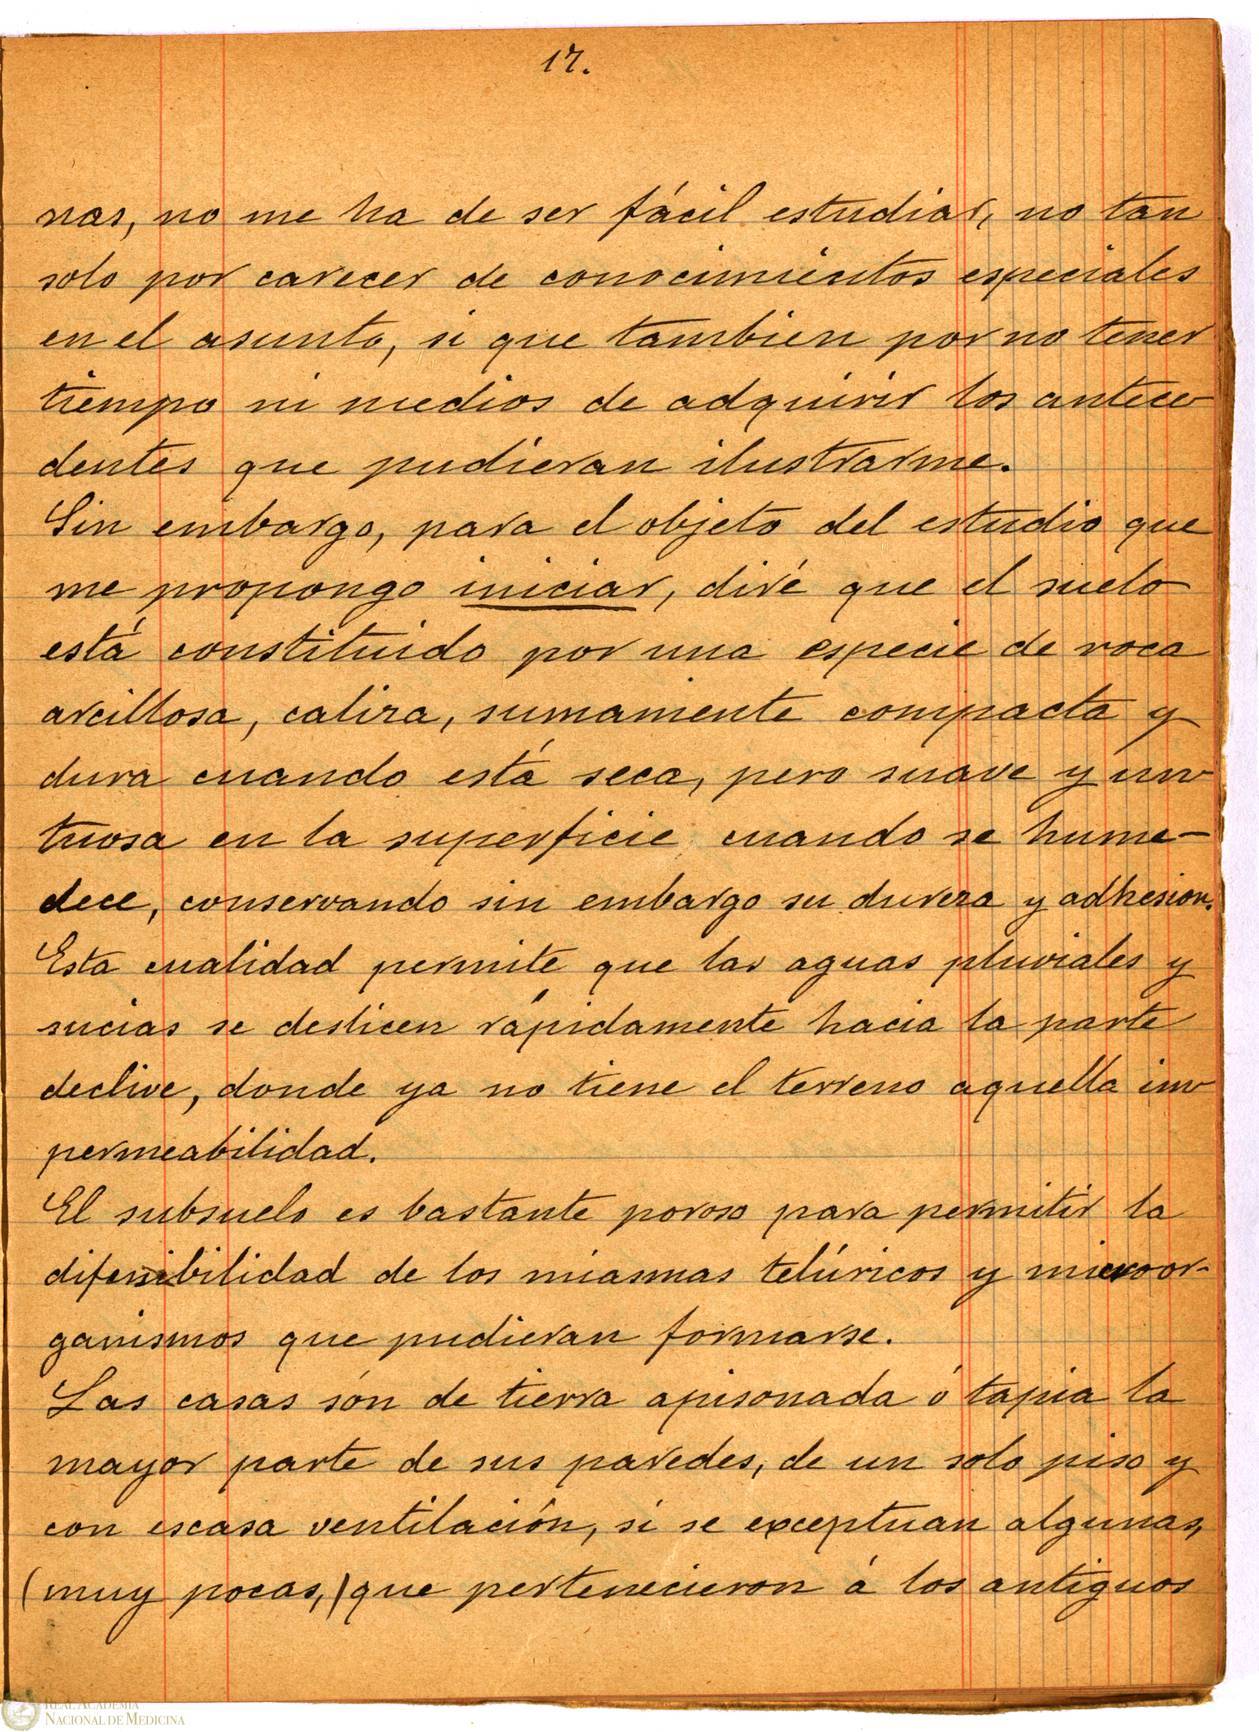 17.
nas, no me ha de ser fácil estudiar, no tan
solo por carecer de conocimientos especiales
en el asunto, si que tambien por no tener
tiempo ni medios de adquirir los antece-
dentes que pudieran ilustrarme.
Sin embargo, para el objeto del estudio que
me propongo iniciar, diré que el suelo
está constituido por una especie de roca
arcillosa, caliza, sumamente compacta y
dura cuando está seca, pero suave y un-
tuosa en la superficie cuando se hume-
dece, conservando sin embargo su dureza y adhesion.
Esta cualidad permite que las aguas pluviales y
sucias se deslicen rápidamente hacia la parte
declive, donde ya no tiene el terreno aquella im-
permeabilidad.
El subsuelo es bastante poroso para permitir la
de los miasmas telúricos y microor-
ganismos que pudieran formarse.
Las casas són de tierra apisonada ó tapia la
mayor parte de sus paredes, de un solo piso y
con escasa ventilación, si se exceptuan algunas,
(muy pocas,) que pertenecieron á los antiguos
REAL ACADEMIA
NACIONAL DE MEDICINA